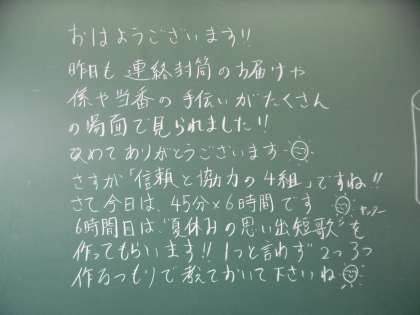 おはようございます!!
昨日も連絡封筒のお届けや
係や当番の手伝いがたくさん
の場面で見られました!!
改めてありがとうございます
さすが「信頼と協力の4組」ですね!!
さて今日は、45分×6時間です
6時間目は、夏休みの思い出短歌を
作ってもらいます!! 1つと言わず2つ3つ
作るつもりで考えておいて下さいね